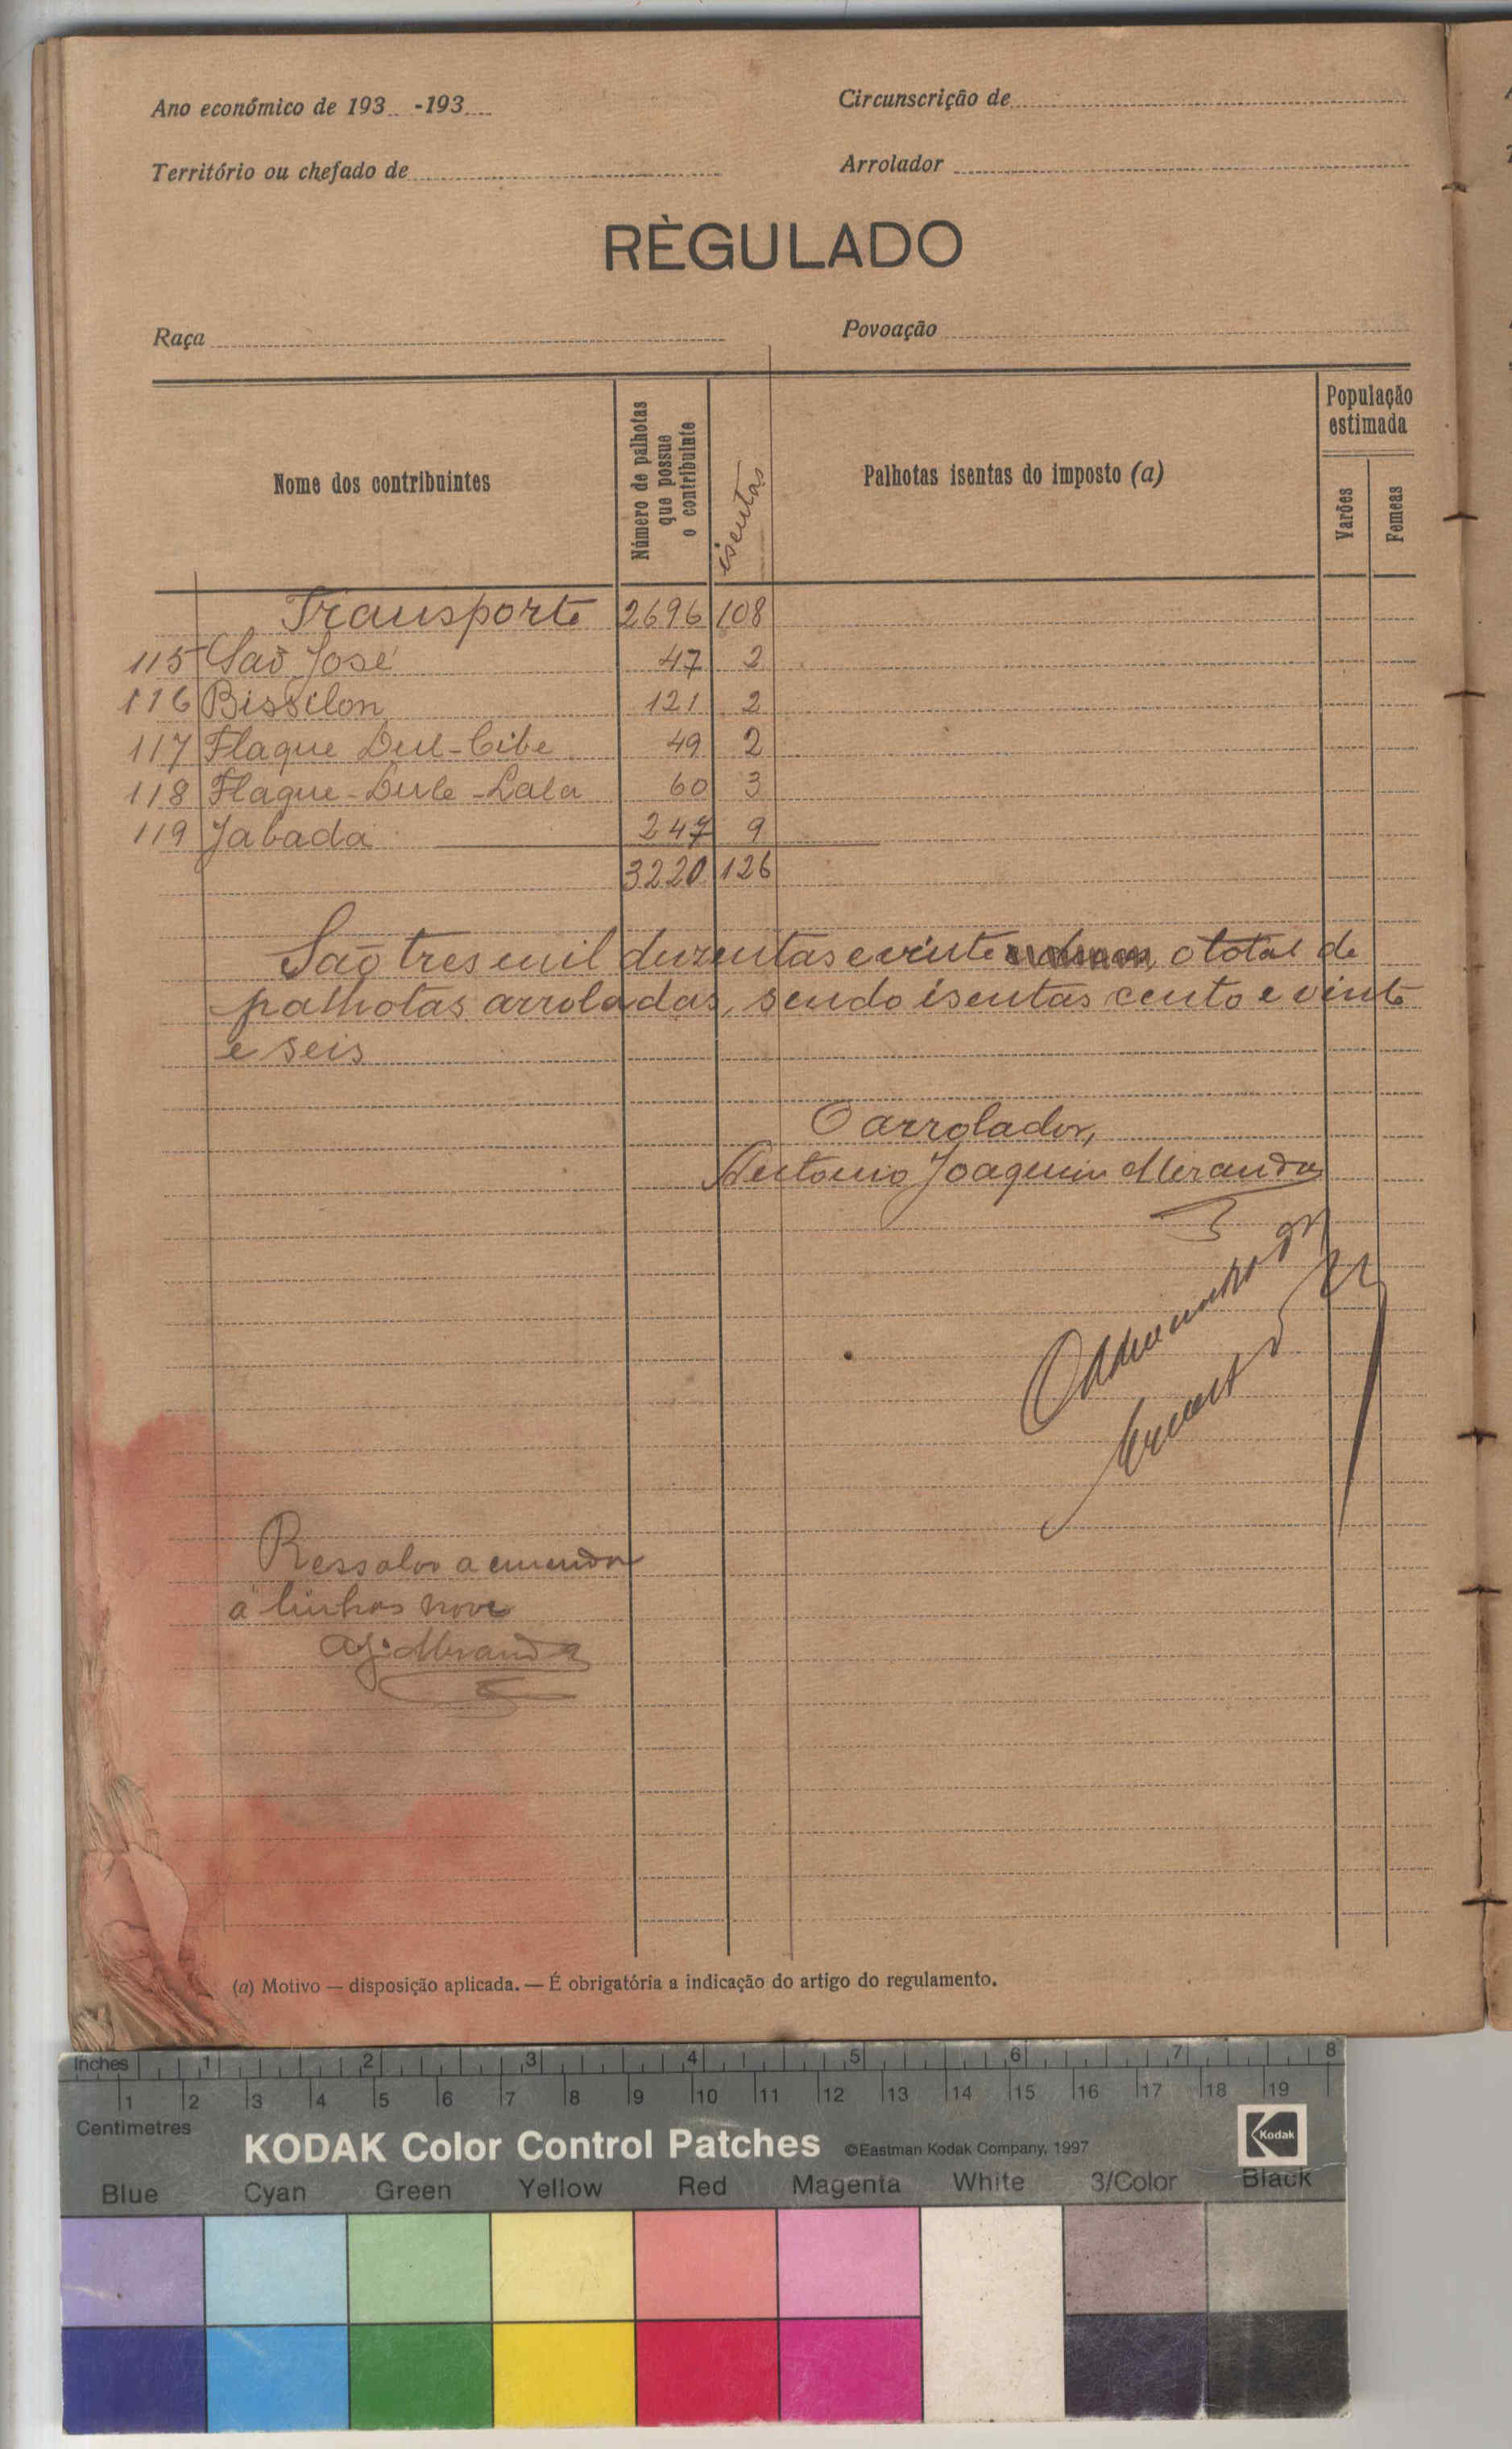 Ano económico de 193 -193
Circunscrição de
Território ou chefado de
Arrolador
RÈGULADO
Raça
Povoação
Nome dos contribuintes
Número de palhotas que possue o contribuinte
isentas
Palhotas isentas do imposto (a)
População estimada
Varões
Femeas
Transporte 2696 108
115 São José 47 2
116 Bissilon 121 2
117 Flaque Dul-Cibe 49 2
118 Flaque-Dule-Lala 60 3
119 Jabada 247 9
3220 126
São tres mil duzentas e vinte o total de
palhotas arroladas, sendo isentas cento e vinte
e seis
O arrolador,
Antonio Joaquim Miranda
Ressalvo a emenda
á linhas nove
A J. Miranda
(a) Motivo — disposição aplicada. — É obrigatória a indicação do artigo do regulamento.
Inches 1 2 3 4 5 6 7 8
1 2 3 4 5 6 7 8 9 10 11 12 13 14 15 16 17 18 19
Centimetres
KODAK Color Control Patches ©Eastman Kodak Company, 1997 Kodak
Blue Cyan Green Yellow Red Magenta White 3/Color Black